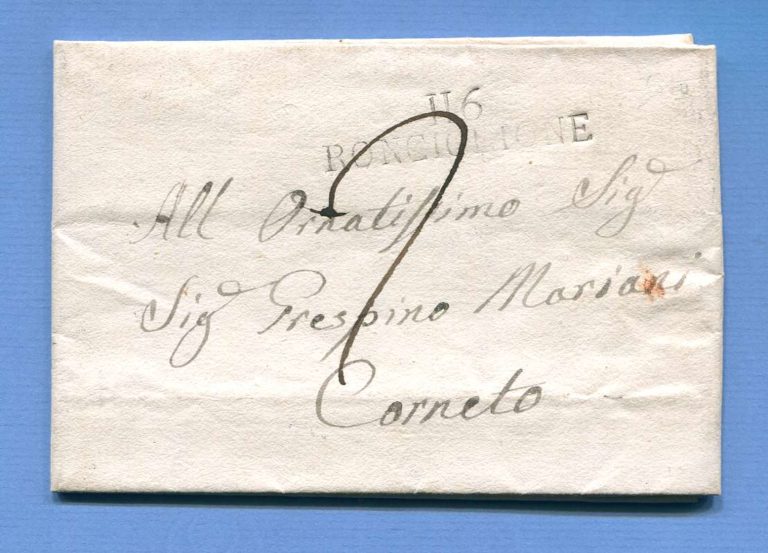 116
RONCIGLIONE
All Ornatissimo Sig
Sig Crespino Mariani
Corneto